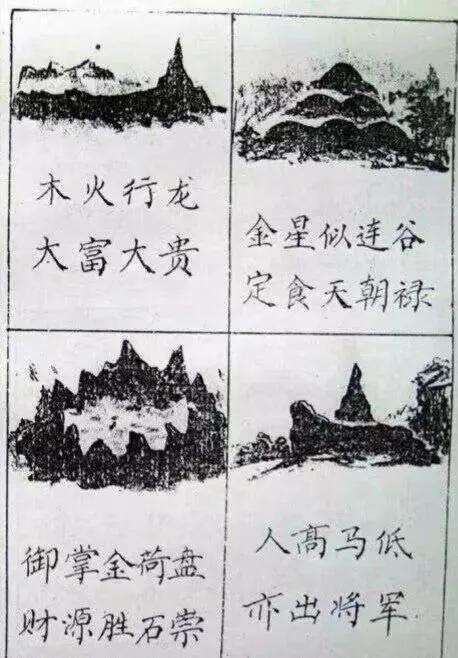 木火行龙
大富大贵
金星似连谷
定食天朝禄
御掌金荷盘
财源胜石崇
人高马低
亦出将军